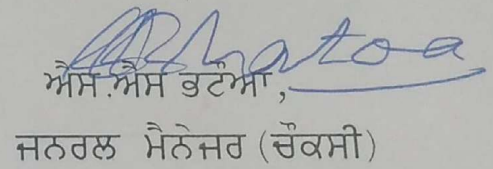 ਐਸ.ਐਸ ਭਟੋਆ,
ਜਨਰਲ ਮੈਨੇਜਰ (ਚੌਕਸੀ)